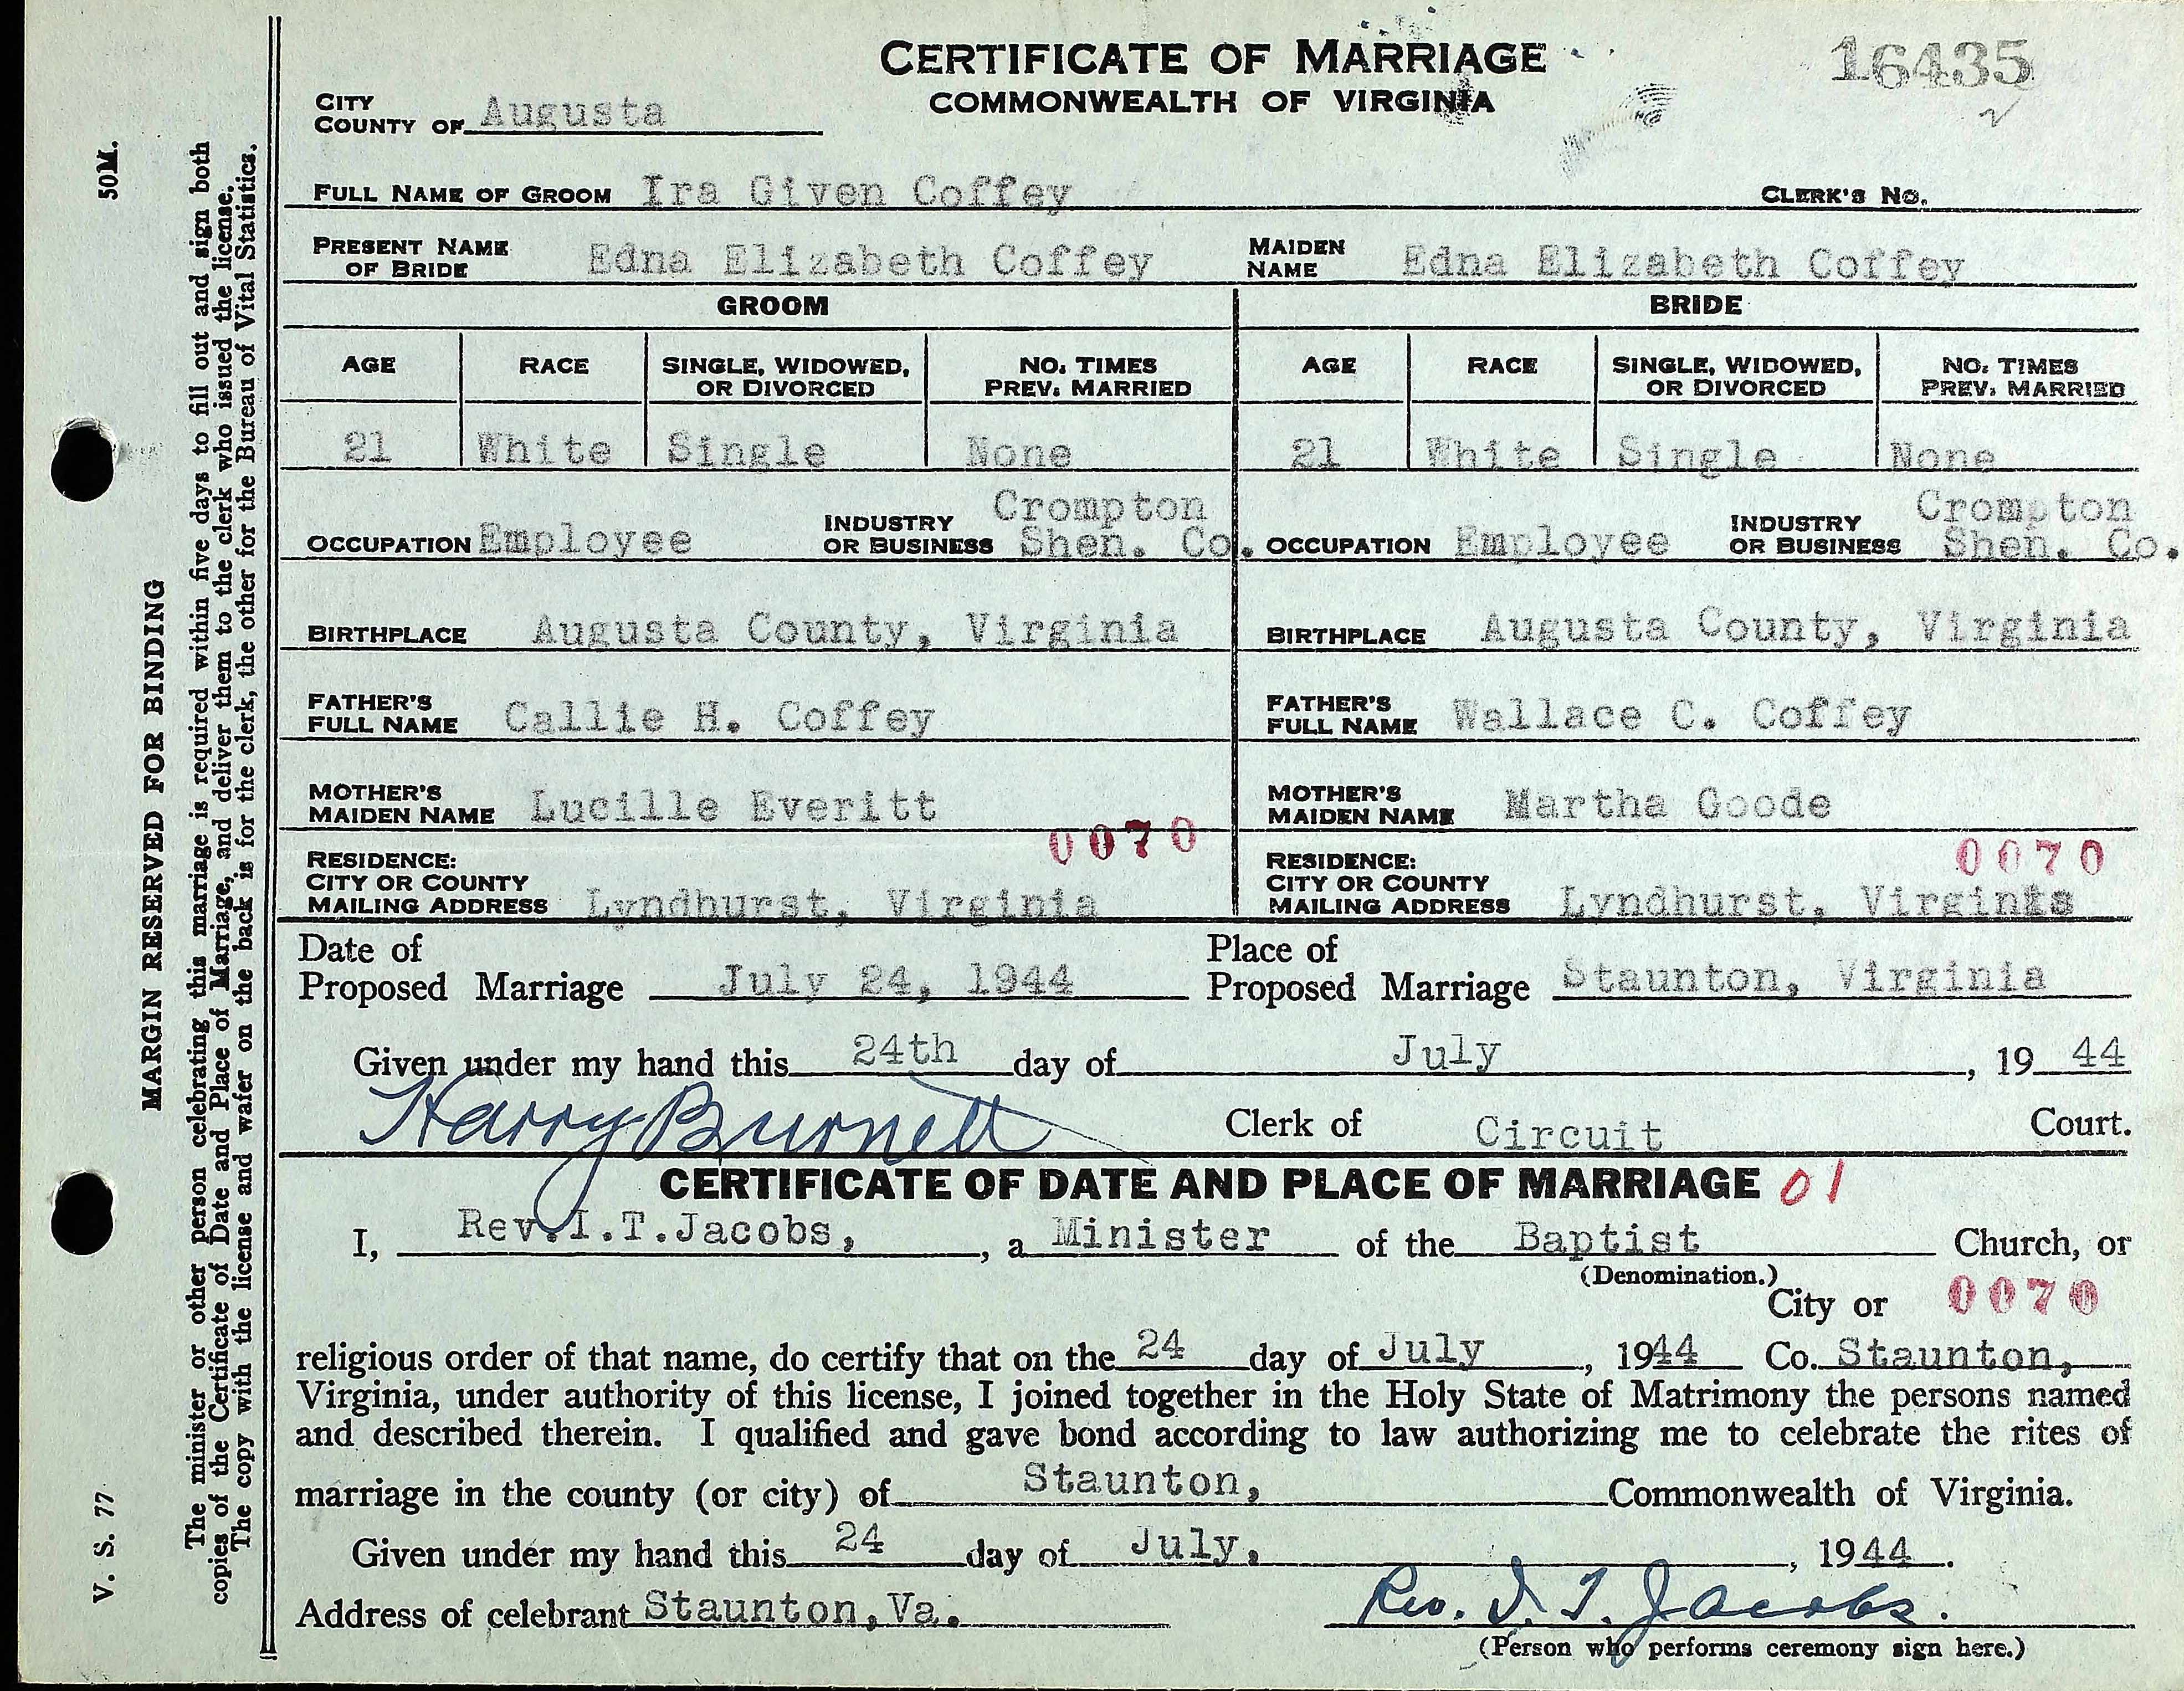 CERTIFICATE OF MARRIAGE
COMMONWEALTH OF VIRGINIA
16435
CITY
COUNTY OF Augusta
FULL NAME OF GROOM Ira Given Coffey CLERK'S NO.
PRESENT NAME OF BRIDE Edna Elizabeth Coffey MAIDEN NAME Edna Elizabeth Coffey
GROOM BRIDE
AGE RACE SINGLE, WIDOWED, OR DIVORCED NO. TIMES PREV. MARRIED AGE RACE SINGLE, WIDOWED, OR DIVORCED NO. TIMES PREV. MARRIED
21 White Single None 21 White Single None
OCCUPATION Employee INDUSTRY OR BUSINESS Crompton Shen. Co. OCCUPATION Employee INDUSTRY OR BUSINESS Crompton Shen. Co.
BIRTHPLACE Augusta County, Virginia BIRTHPLACE Augusta County, Virginia
FATHER'S FULL NAME Callie H. Coffey FATHER'S FULL NAME Wallace C. Coffey
MOTHER'S MAIDEN NAME Lucille Everitt MOTHER'S MAIDEN NAME Martha Goode
0070 0070
RESIDENCE: CITY OR COUNTY MAILING ADDRESS Lyndhurst, Virginia RESIDENCE: CITY OR COUNTY MAILING ADDRESS Lyndhurst, Virginia
Date of Proposed Marriage July 24, 1944 Place of Proposed Marriage Staunton, Virginia
Given under my hand this 24th day of July, 19 44
Harry Burnett Clerk of Circuit Court.
CERTIFICATE OF DATE AND PLACE OF MARRIAGE 01
I, Rev. I.T.Jacobs, , a Minister of the Baptist Church, or
(Denomination.)
City or 0070
religious order of that name, do certify that on the 24 day of July, 1944 Co. Staunton,
Virginia, under authority of this license, I joined together in the Holy State of Matrimony the persons named
and described therein. I qualified and gave bond according to law authorizing me to celebrate the rites of
marriage in the county (or city) of Staunton, Commonwealth of Virginia.
Given under my hand this 24 day of July, , 1944.
Address of celebrant Staunton, Va. Rev. I. T. Jacobs.
(Person who performs ceremony sign here.)
50M.
MARGIN RESERVED FOR BINDING
V. S. 77
The minister or other person celebrating this marriage is required within five days to fill out and sign both
copies of the Certificate of Date and Place of Marriage, and deliver them to the clerk who issued the license.
The copy with the license and wafer on the back is for the clerk, the other for the Bureau of Vital Statistics.